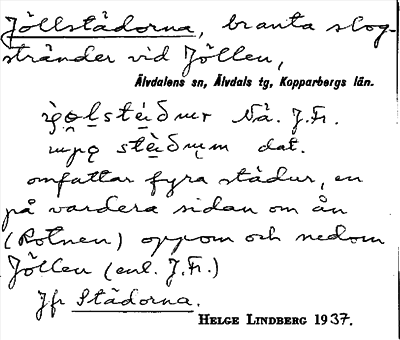 Jöllstädorna, branta skog-
stränder vid Jöllen,
Älvdalens sn, Älvdals tg, Kopparbergs län.
Nå. J.Fr.
dat.
omfattar fyra städur, en
på vardera sidan om ån
(Rotnen) oppom och nedom
Jöllen (enl. J.Fr.)
Jfr Städorna.
HELGE LINDBERG 1937.